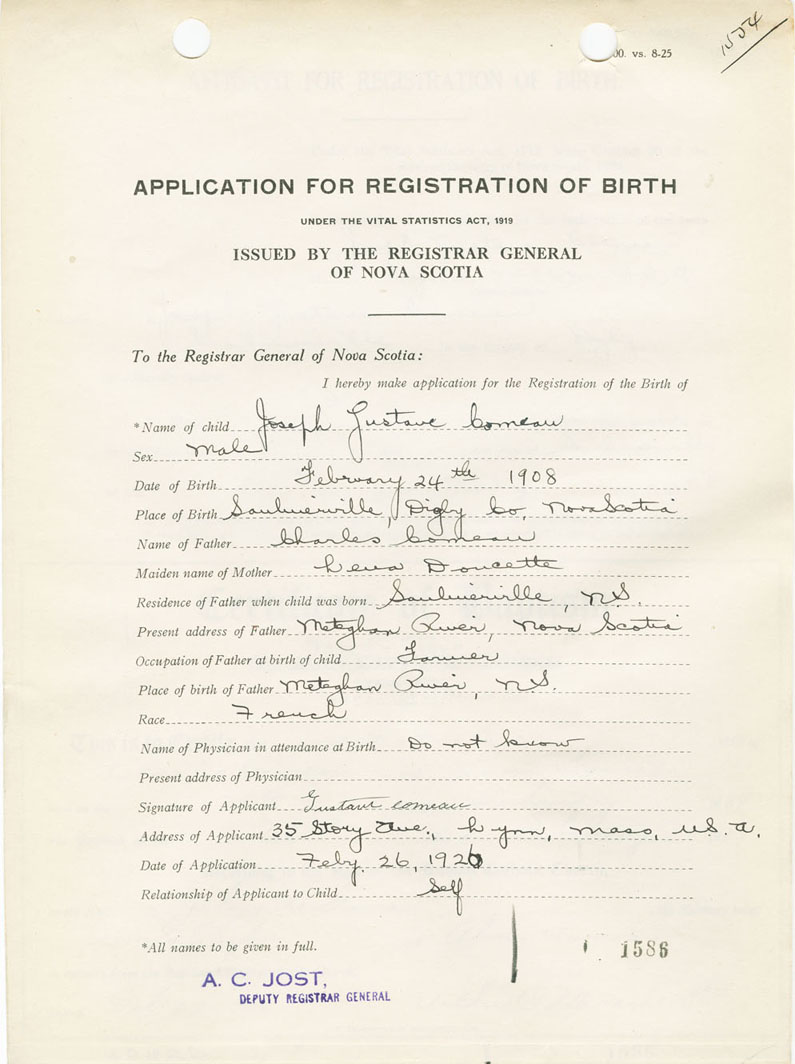 00. vs. 8-25
1554
APPLICATION FOR REGISTRATION OF BIRTH
UNDER THE VITAL STATISTICS ACT, 1919
ISSUED BY THE REGISTRAR GENERAL
OF NOVA SCOTIA
To the Registrar General of Nova Scotia:
I hereby make application for the Registration of the Birth of
*Name of child Joseph Gustave Comeau
Sex Male
Date of Birth February 24th 1908
Place of Birth Saulnierville, Digby Co, Nova Scotia
Name of Father Charles Comeau
Maiden name of Mother Lena Doucette
Residence of Father when child was born Saulnierville, N.S.
Present address of Father Meteghan River, Nova Scotia
Occupation of Father at birth of child Farmer
Place of birth of Father Meteghan River, N.S.
Race French
Name of Physician in attendance at Birth Do not know
Present address of Physician
Signature of Applicant Gustave comeau
Address of Applicant 35 Story Ave., Lynn, Mass, U.S.A.
Date of Application Feby. 26, 1926
Relationship of Applicant to Child Self
*All names to be given in full.
1586
A. C. JOST,
DEPUTY REGISTRAR GENERAL